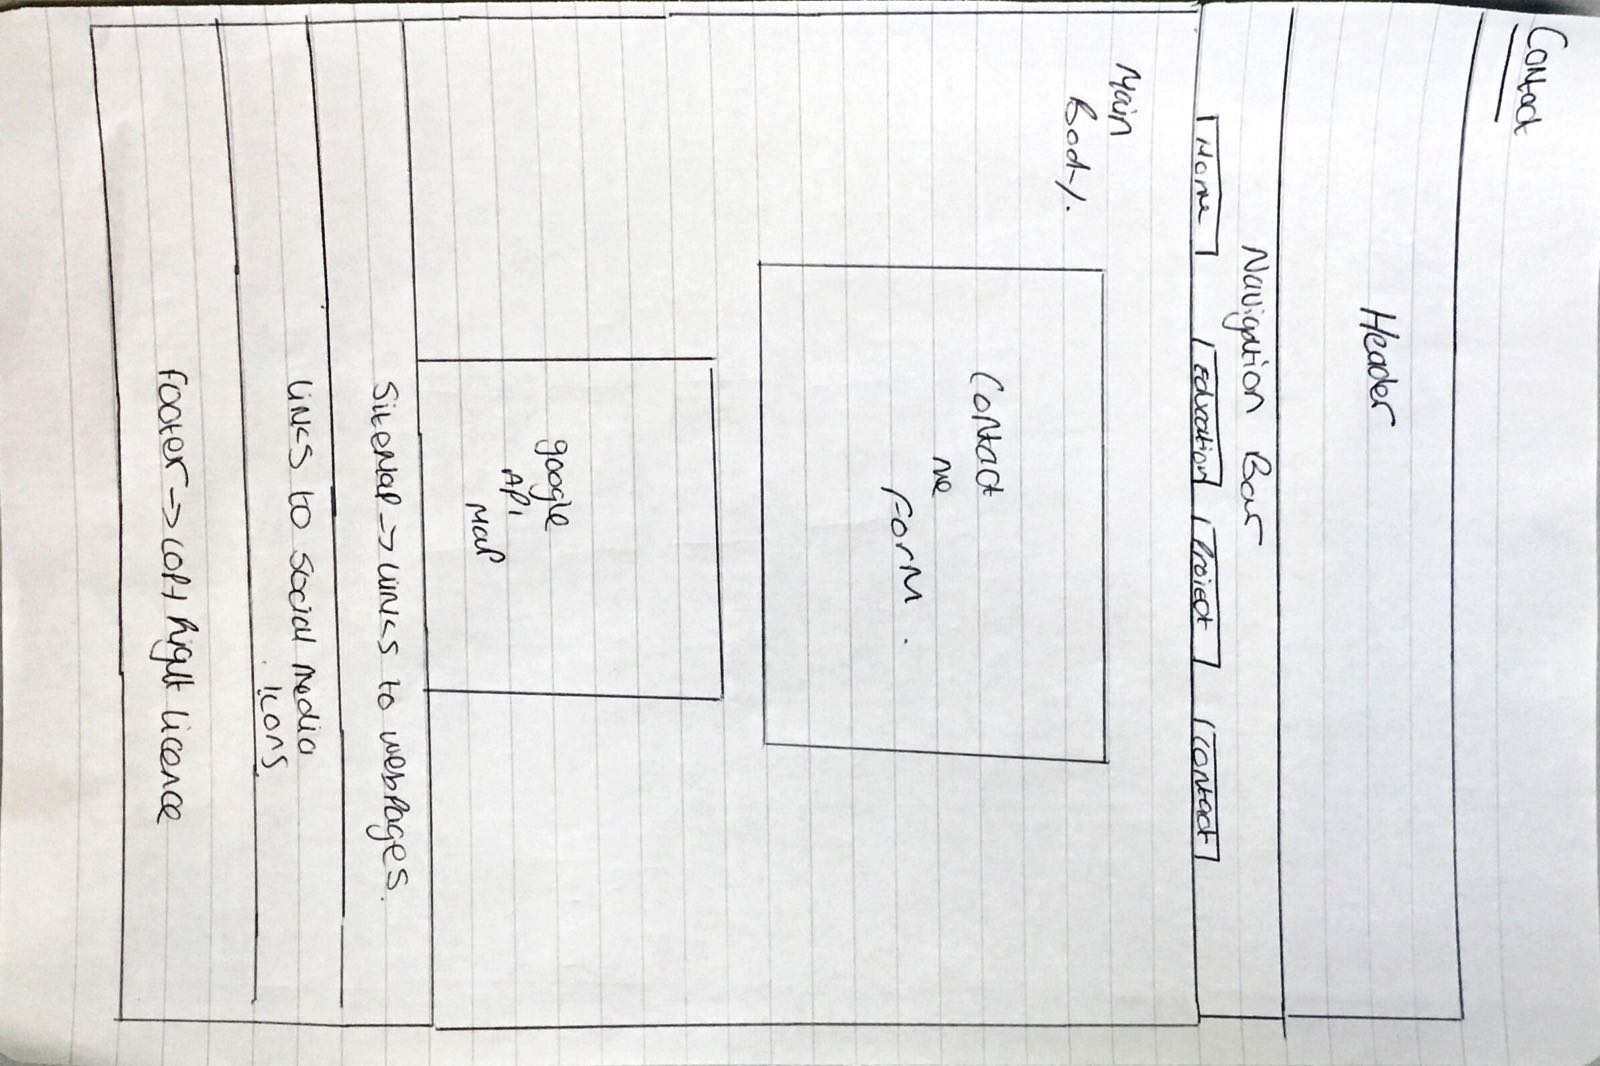 Contact
Header
Navigation Bar
Home Education Project Contact
Main
Body.
Contact
me
Form.
google
API
Map
Sitemap -> Links to webpages.
Links to social media
icons
Footer -> Copy Right licence